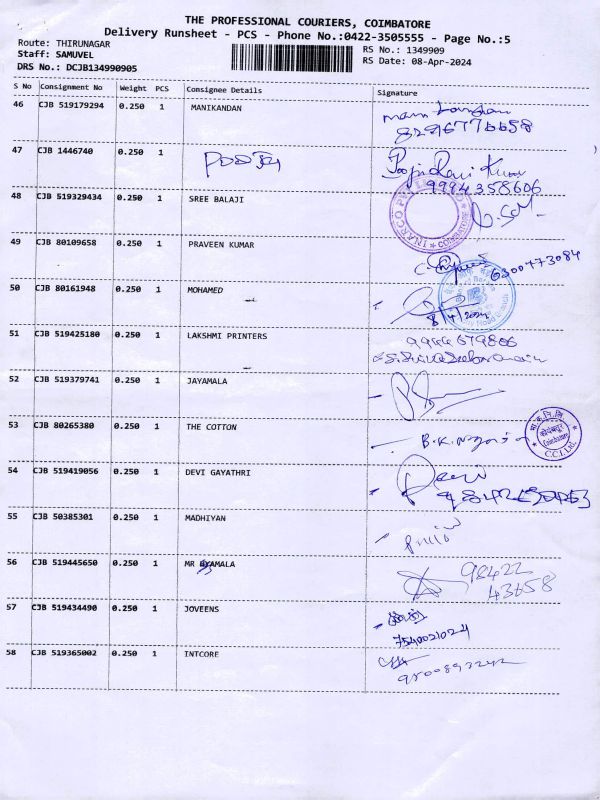 THE PROFESSIONAL COURIERS, COIMBATORE
Delivery Runsheet - PCS - Phone No.:0422-3505555 - Page No.:5
Route: THIRUNAGAR
RS No.: 1349909
Staff: SAMUVEL
RS Date: 08-Apr-2024
DRS No.: DCJB134990905
S No Consignment No Weight PCS Consignee Details Signature
46 CJB 519179294 0.250 1 MANIKANDAN
8296776658
47 CJB 1446740 0.250 1 POOJA
9994358606
48 CJB 519329434 0.250 1 SREE BALAJI
COIMBATORE
49 CJB 80109658 0.250 1 PRAVEEN KUMAR
6300473084
50 CJB 80161948 0.250 1 MOHAMED
8/4/2024
51 CJB 519425180 0.250 1 LAKSHMI PRINTERS
9944679806
52 CJB 519379741 0.250 1 JAYAMALA
53 CJB 80265380 0.250 1 THE COTTON
B.K.
Coimbatore
54 CJB 519419056 0.250 1 DEVI GAYATHRI
Devi
55 CJB 50385301 0.250 1 MADHIYAN
56 CJB 519445650 0.250 1 MR SYAMALA
98422
43658
57 CJB 519434490 0.250 1 JOVEENS
7540021024
58 CJB 519365002 0.250 1 INTCORE